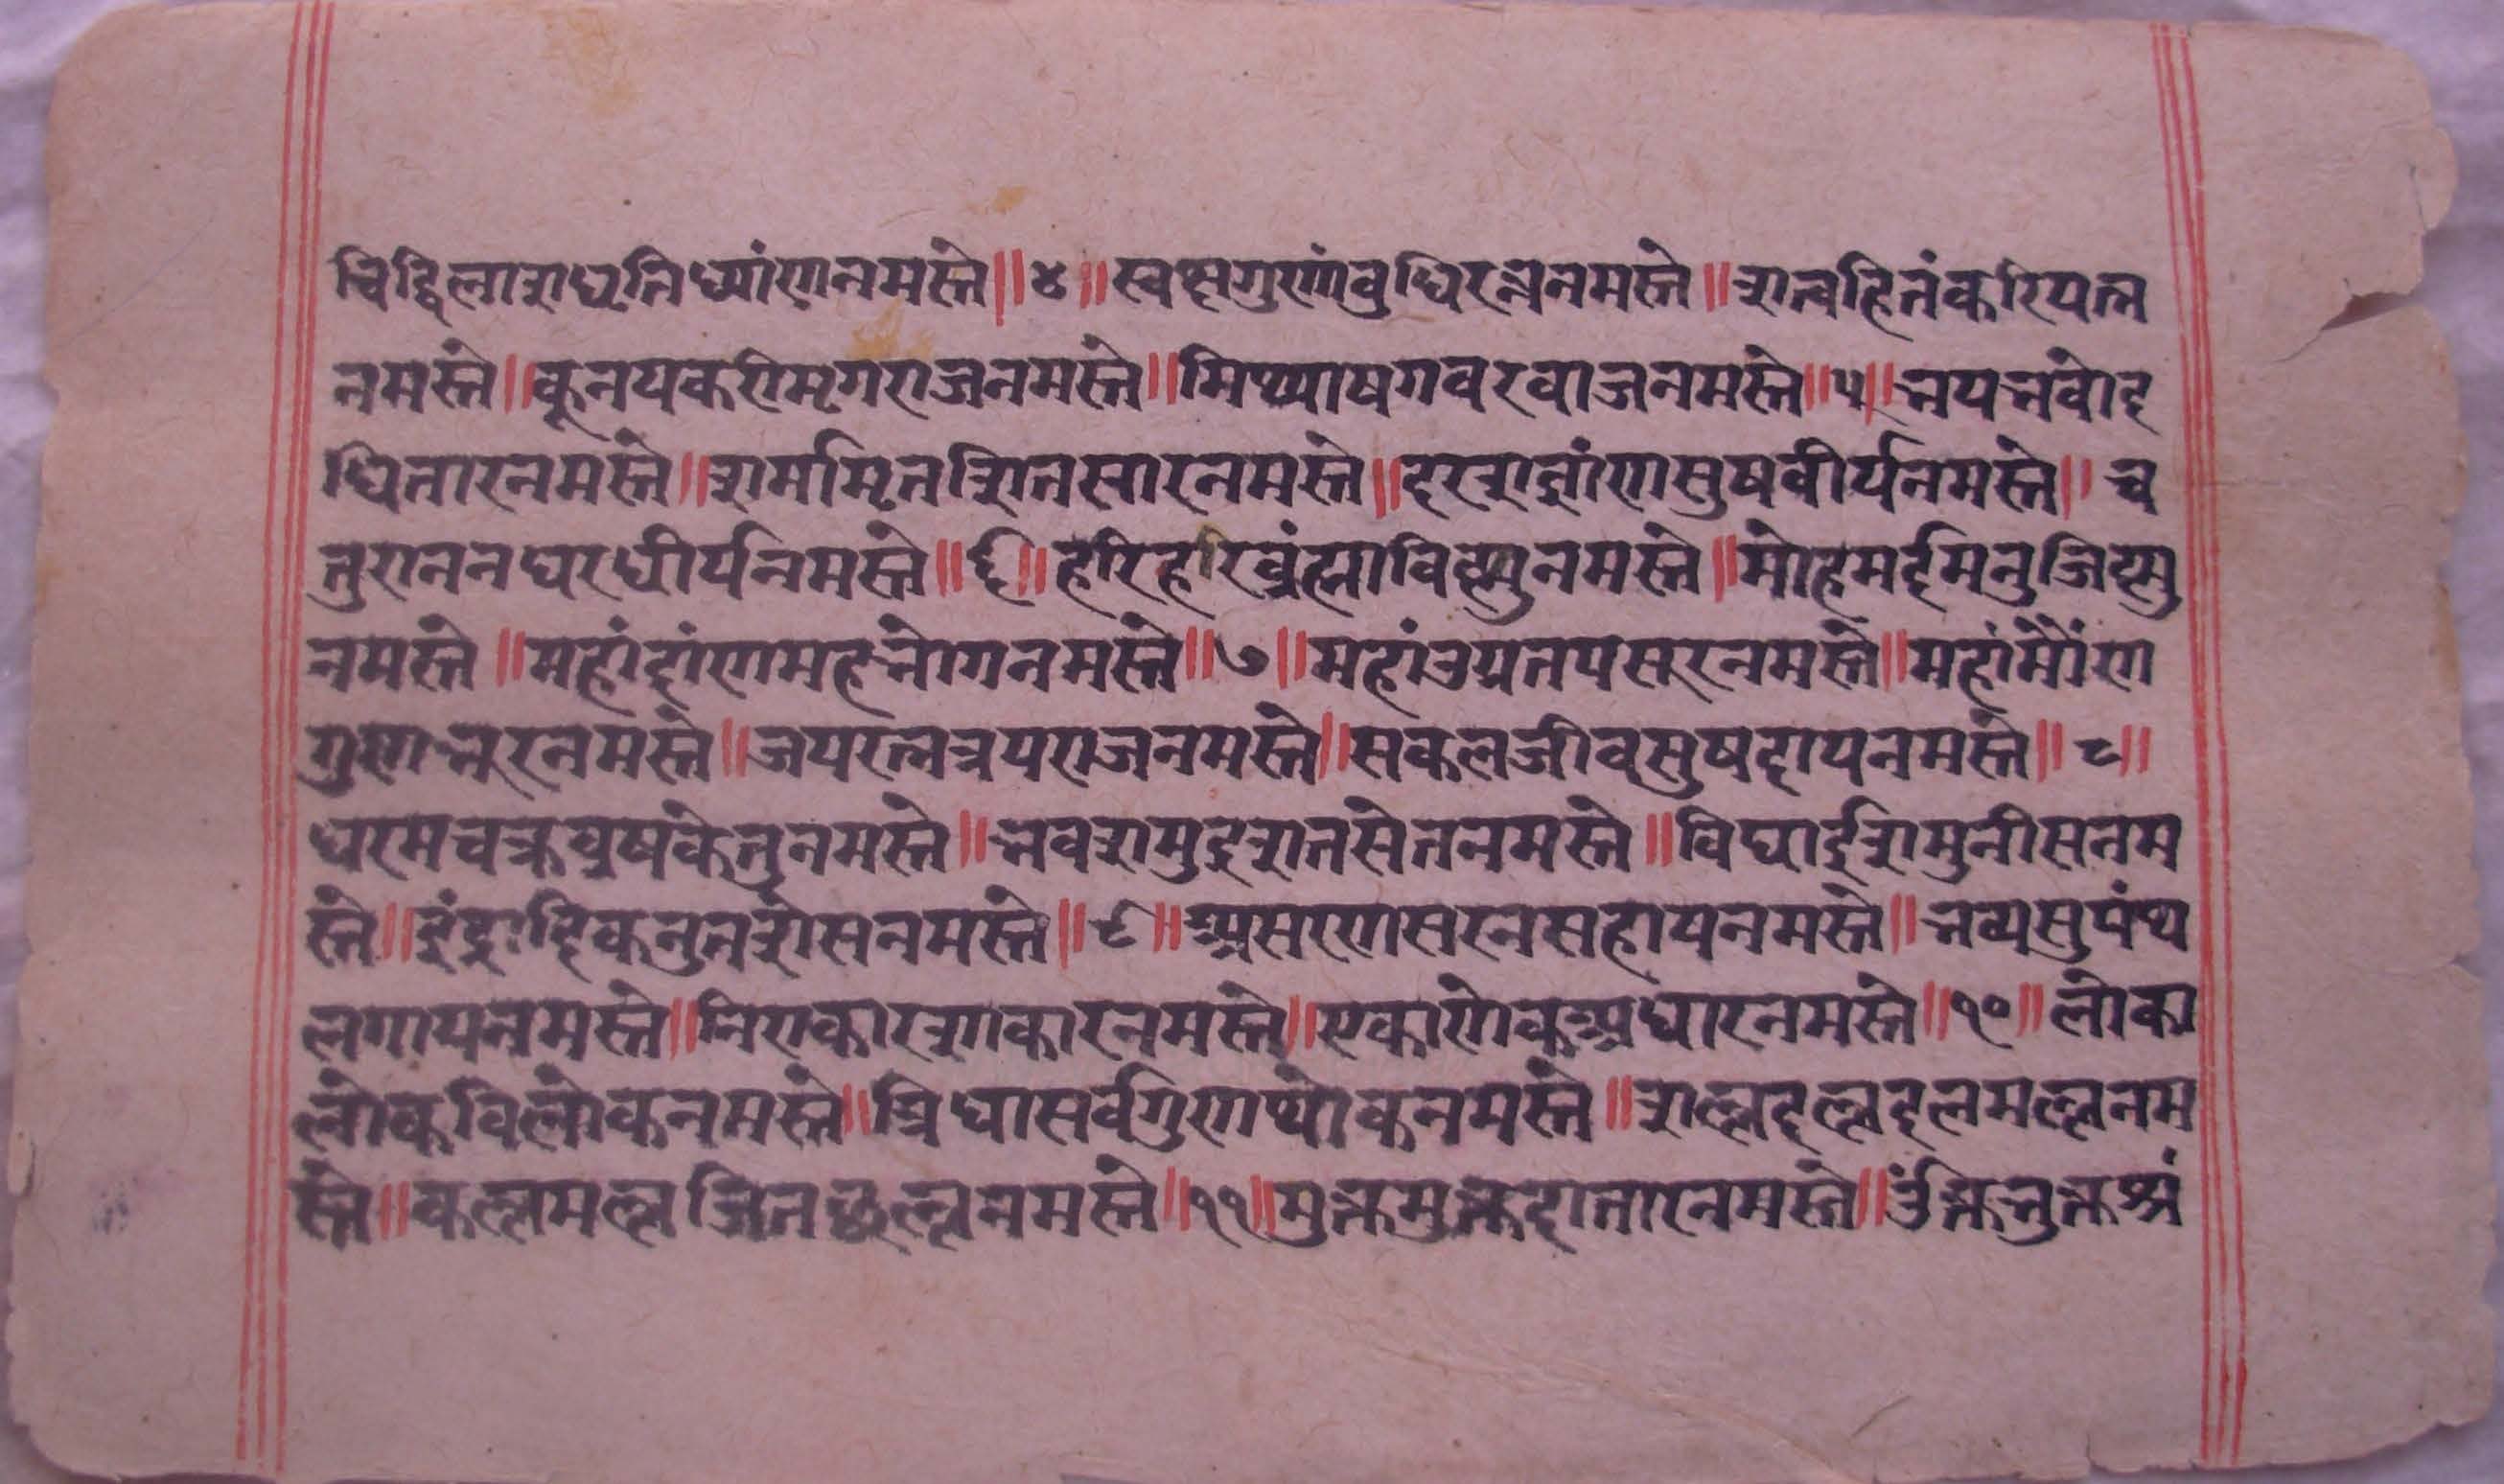 चिद्विलाशधृतिध्यांणनमस्ते॥४॥स्वछगुणांवुधिरत्ननमस्ते॥शत्वहितंकरियत्न
नमस्ते॥कूनयकरीमृगराजनमस्ते॥मिथ्याषगवरवाजनमस्ते॥५॥भयभवोद
धितारनमस्ते॥शर्मामृतशितसारनमस्ते॥दरशज्ञांणसुषवीर्यनमस्ते॥च
तुराननधरधीर्यनमस्ते॥६॥हरिहरव्रंह्माविष्णुनमस्ते॥मोहमर्दमनुजिष्णु
नमस्ते॥महांदांणमहभोगनमस्ते॥७॥महांउग्रतपसूरनमस्ते॥महांमौंण
गुणभूरनमस्ते॥जयरत्नत्रयराजनमस्ते॥सकलजीवसुषदायनमस्ते॥८॥
धरमचक्रवृषकेतुनमस्ते॥भवशमुद्रशतसेतनमस्ते॥विधाईशमुनीसनम
स्ते॥इंद्रादिकनुतशीसनमस्ते॥९॥असरणसरनसहायनमस्ते॥भव्यसुपंथ
लगायनमस्ते॥निराकारशाकारनमस्ते॥एकाणेकअधारनमस्ते॥१०॥लोका
लोकविलोकनमस्ते॥त्रिधासर्वगुणथोकनमस्ते॥शल्लदल्लदलमल्लनम
स्ते॥कल्लमल्लजितछल्लनमस्ते॥११॥भुक्तमुक्तदातारनमस्ते॥उक्तभुक्तश्रं